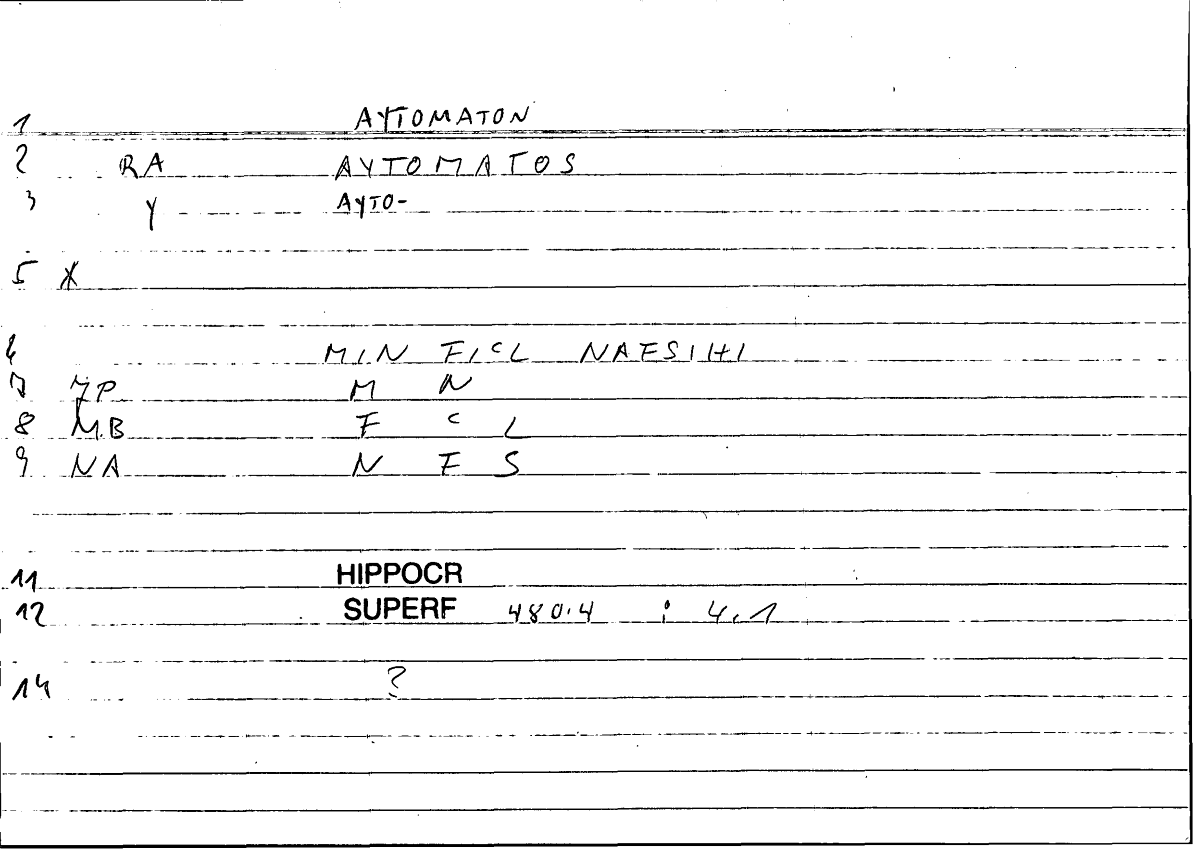 1 AYTOMATON
2 RA AYTOMATOS
3 Y AYTO-
5 X
6 MIN F/CL NAFSIHI
7 JP M N
8 MB F C L
9 NA N F S
11 HIPPOCR
12 SUPERF 480.4 : 4.1
14 ?